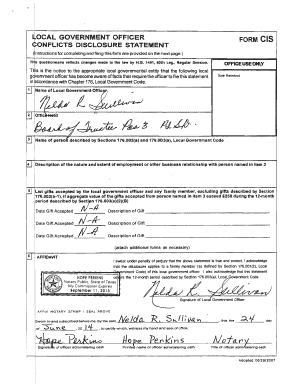 LOCAL GOVERNMENT OFFICER
CONFLICTS DISCLOSURE STATEMENT
FORM CIS
(Instructions for completing and filing this form are provided on the next page.)
This questionnaire reflects changes made to the law by H.B. 1491, 80th Leg., Regular Session.
OFFICE USE ONLY
This is the notice to the appropriate local governmental entity that the following local
government officer has become aware of facts that require the officer to file this statement
in accordance with Chapter 176, Local Government Code.
Date Received
1 Name of Local Government Officer
Nelda R. Sullivan
2 Office Held
Board of Trustee Pos 3
3 Name of person described by Sections 176.002(a) and 176.003(a), Local Government Code
4 Description of the nature and extent of employment or other business relationship with person named in item 3
5 List gifts accepted by the local government officer and any family member, excluding gifts described by Section
176.003(a-1), if aggregate value of the gifts accepted from person named in item 3 exceed $250 during the 12-month
period described by Section 176.003(a)(2)(B)
Date Gift Accepted N-A Description of Gift
Date Gift Accepted N-A Description of Gift
Date Gift Accepted N-A Description of Gift
(attach additional forms as necessary)
6 AFFIDAVIT
I swear under penalty of perjury that the above statement is true and correct. I acknowledge
that the disclosure applies to a family member (as defined by Section 176.001(2), Local
Government Code) of this local government officer. I also acknowledge that this statement
covers the 12-month period described by Section 176.003(a), Local Government Code.
HOPE PERKINS
Notary Public, State of Texas
My Commission Expires
September 11, 2015
Nelda R. Sullivan
Signature of Local Government Officer
AFFIX NOTARY STAMP / SEAL ABOVE
Sworn to and subscribed before me, by the said Nelda R. Sullivan this the 24 day
of June 20 14, to certify which, witness my hand and seal of office.
Hope Perkins Hope Perkins Notary
Signature of officer administering oath Printed name of officer administering oath Title of officer administering oath
Adopted 06/29/2007